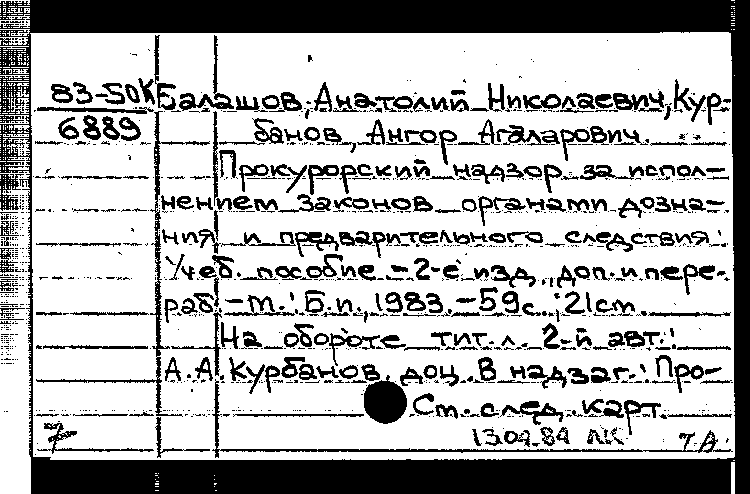 83-50К Балашов, Анатолий Николаевич, Кур-
6889 банов, Ангор Агаларович.
Прокурорский надзор за испол-
нением законов органами дозна-
ния и предварительного следствия:
Учеб. пособие. - 2-е изд., доп. и пере-
раб. - М.: Б.и., 1983. - 59с.; 21см.
На обороте тит. л. 2-й авт.:
А.А. Курбанов, доц. В надзаг.: Про-
См. след. карт.
7 13.04.84 ЛК Т.А.